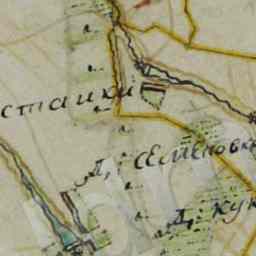 стаики
Д, СЕМЕНОВК
Д, КУК